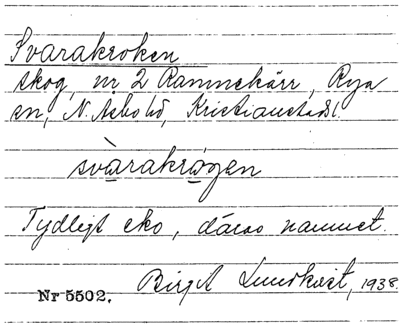 Svarakroken
skog, nr 2 Rammekärr, Rya
sn, N. Åsbo hd, Kristianstads l.
svàrakrogen
Tydligt eko, därav namnet.
Birgit Lundkvist, 1938.
Nr 5502.